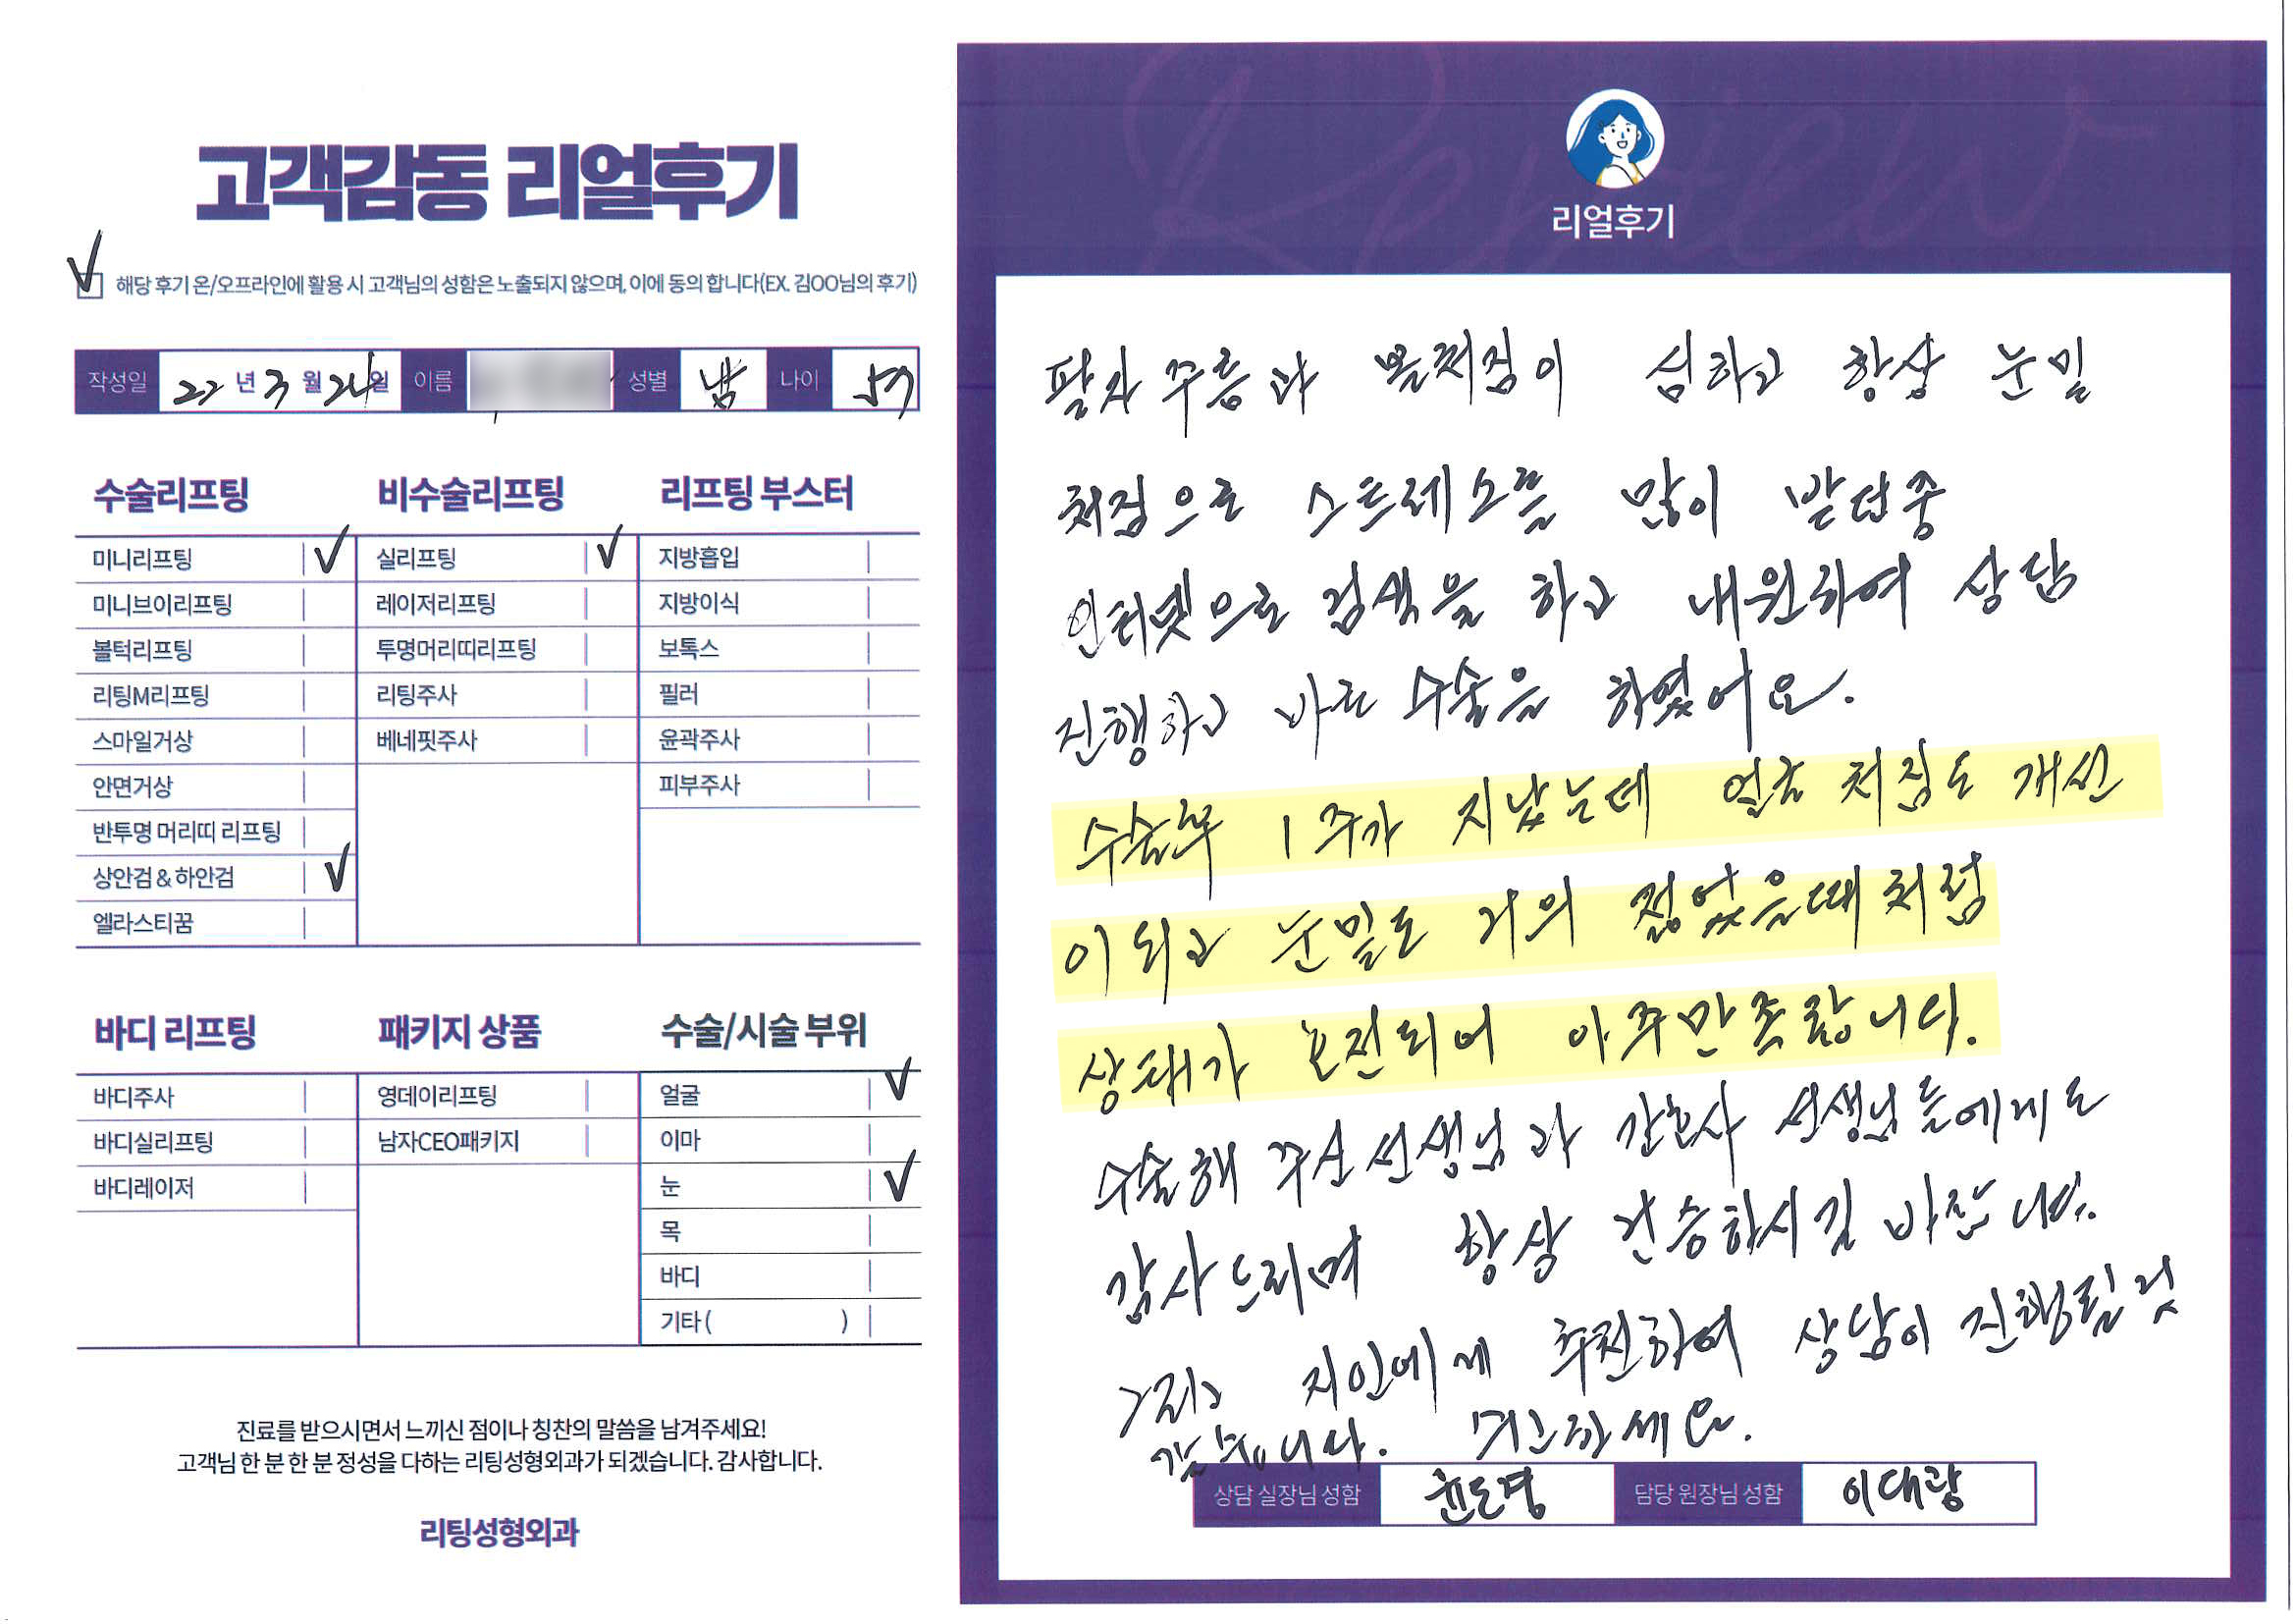 고객감동 리얼후기
해당 후기 온/오프라인에 활용 시 고객님의 성함은 노출되지 않으며, 이에 동의 합니다(EX. 김OO님의 후기)
작성일 22년 3월 24일 이름 성별 남 나이 57
수술리프팅
미니리프팅
미니브이리프팅
볼턱리프팅
리팅M리프팅
스마일거상
안면거상
반투명 머리띠 리프팅
상안검 & 하안검
엘라스티꿈
비수술리프팅
실리프팅
레이저리프팅
투명머리띠리프팅
리팅주사
베네핏주사
리프팅 부스터
지방흡입
지방이식
보톡스
필러
윤곽주사
피부주사
바디 리프팅
바디주사
바디실리프팅
바디레이저
패키지 상품
영데이리프팅
남자CEO패키지
수술/시술 부위
얼굴
이마
눈
목
바디
기타 ( )
진료를 받으시면서 느끼신 점이나 칭찬의 말씀을 남겨주세요!
고객님 한 분 한 분 정성을 다하는 리팅성형외과가 되겠습니다. 감사합니다.
리팅성형외과
Review
리얼후기
팔자 주름과 볼처짐이 심하고 항상 눈밑
처짐으로 스트레스를 많이 받던중
인터넷으로 검색을 하고 내원하여 상담
진행하고 바로 수술을 하였어요.
수술후 1주가 지났는데 얼굴 처짐도 개선
이 되고 눈밑도 거의 젊었을때처럼
상태가 호전되어 아주만족합니다.
수술해 주신선생님과 간호사 선생님들에게도
감사드리며 항상 건승하시길 바랍니다.
그리고 지인에게 추천하여 상담이 진행될것
같습니다. 수고하세요.
상담 실장님 성함 윤도경 담당 원장님 성함 이대광